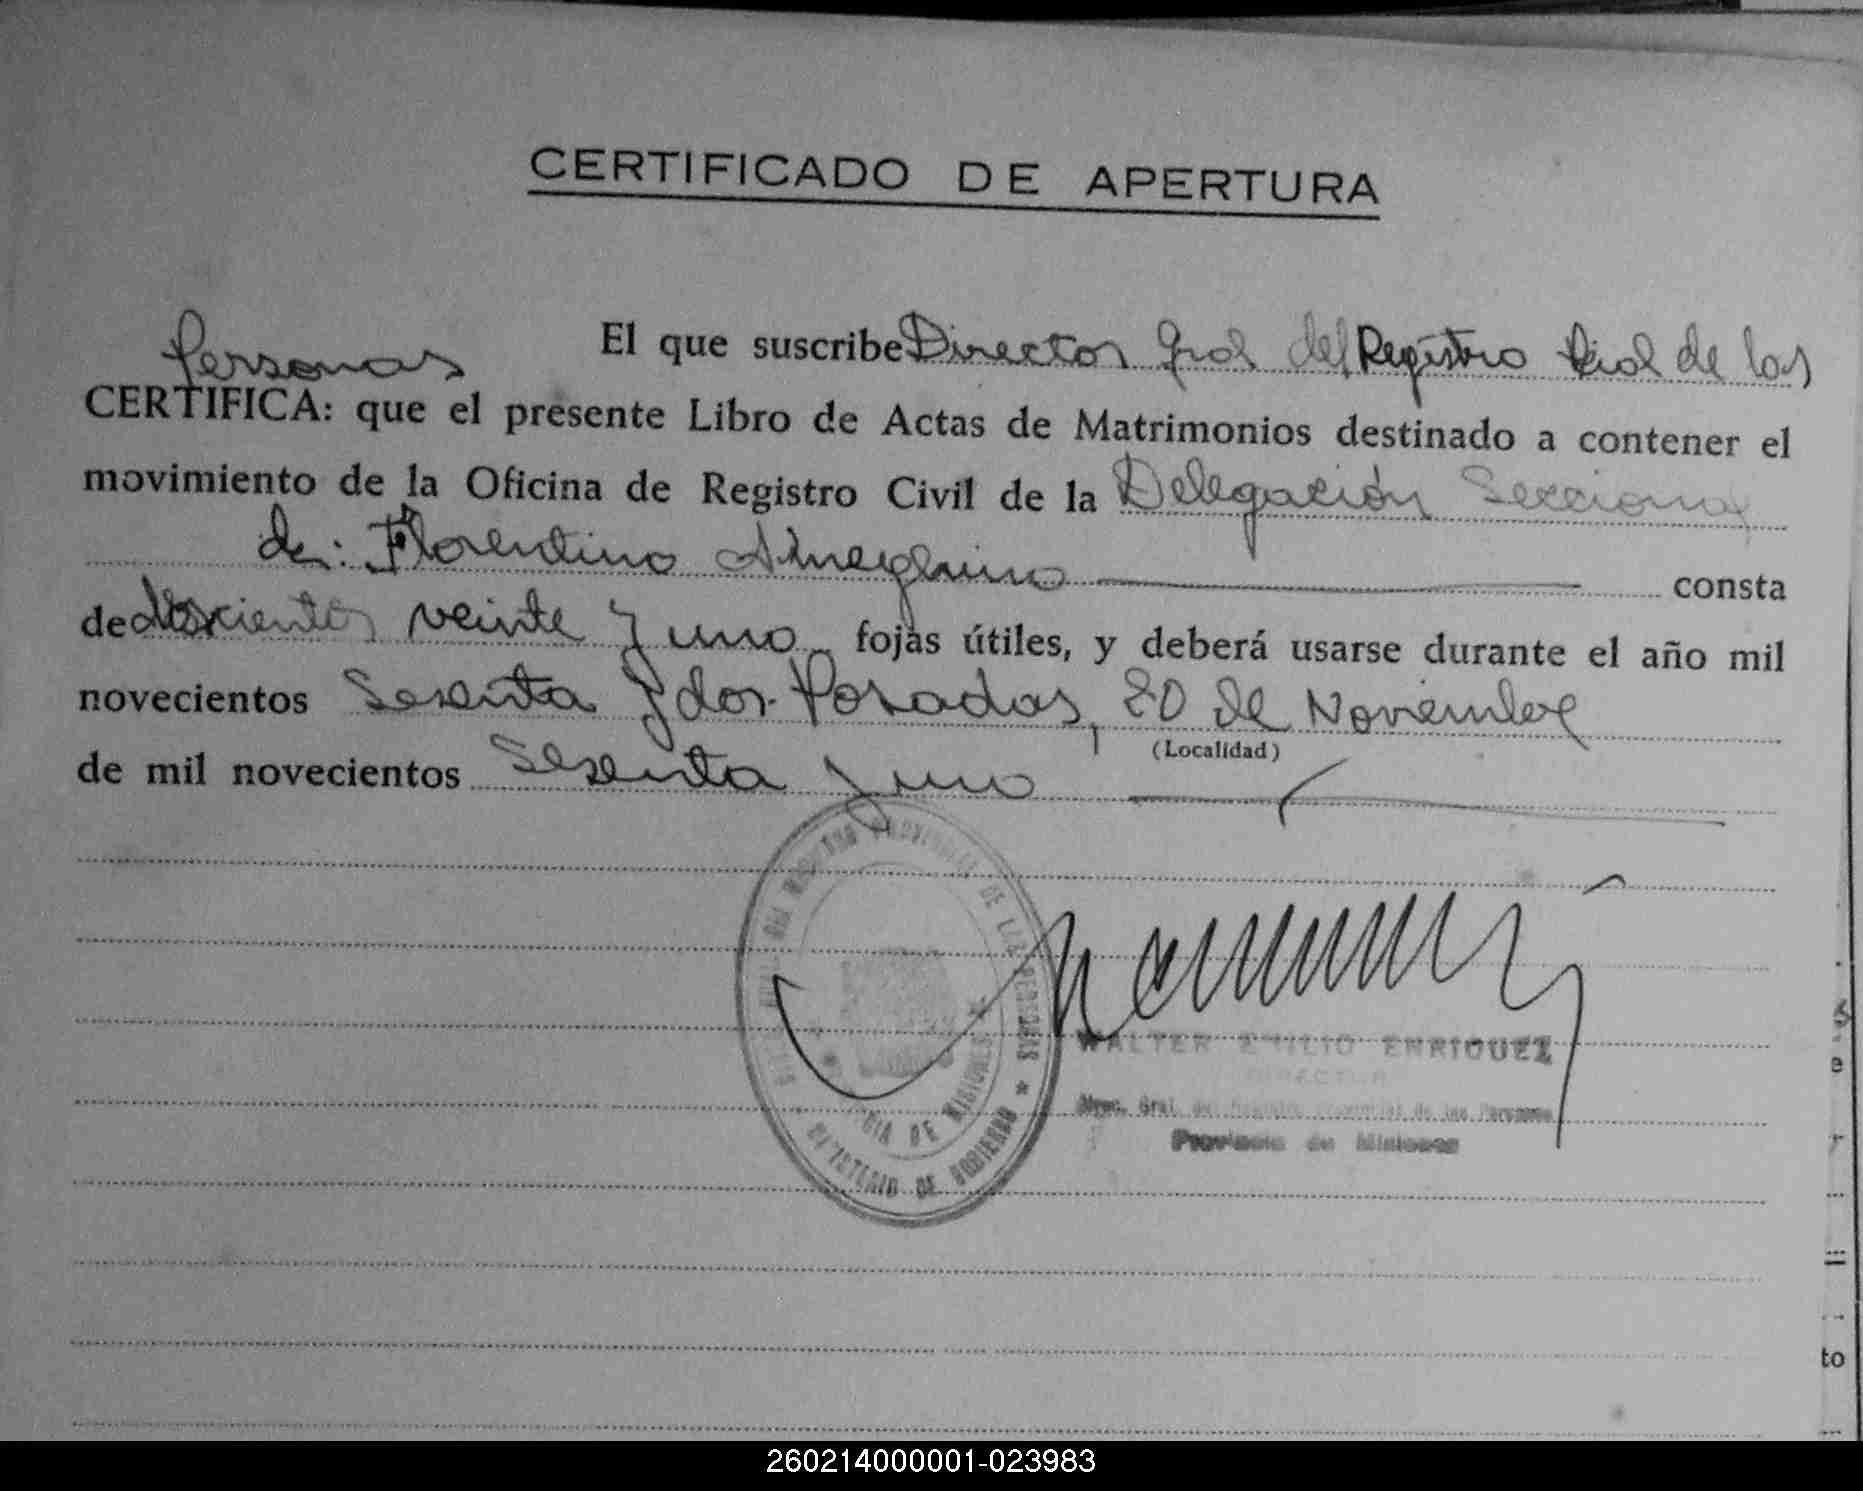 CERTIFICADO DE APERTURA
El que suscribe Director Gral del Registro Pcial de las
Personas
CERTIFICA: que el presente Libro de Actas de Matrimonios destinado a contener el
movimiento de la Oficina de Registro Civil de la Delegación Seccional
de: Florentino Ameghino consta
de doscientos veinte y uno fojas útiles, y deberá usarse durante el año mil
novecientos Sesenta y dos. Posadas, 20 de Noviembre
(Localidad)
de mil novecientos Sesenta y uno
DE LAS PERSONAS
DE MISIONES
DE GOBIERNO
WALTER EMILIO ENRIQUEZ
DIRECTOR
Direc. Gral. del Registro Provincial de las Personas
Provincia de Misiones
e
r
to
260214000001-023983